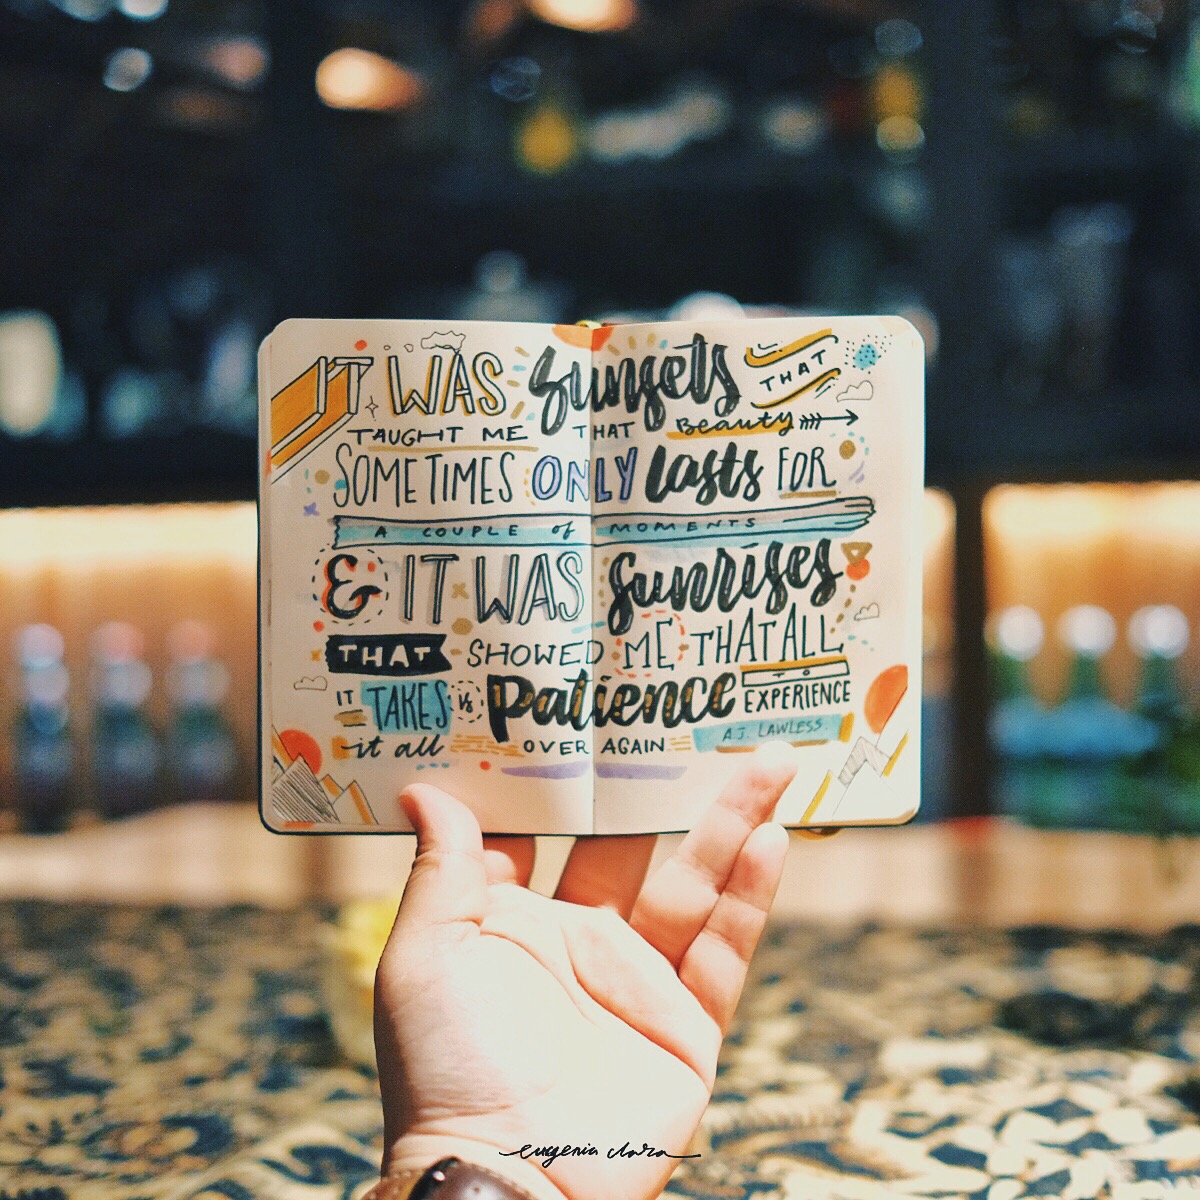 IT WAS Sunsets THAT
TAUGHT ME THAT Beauty
SOMETIMES ONLY lasts FOR
A COUPLE of MOMENTS
& IT WAS Sunrises
THAT SHOWED ME THAT ALL
IT TAKES is Patience TO EXPERIENCE
it all OVER AGAIN A.J. LAWLESS.
eugenia clara